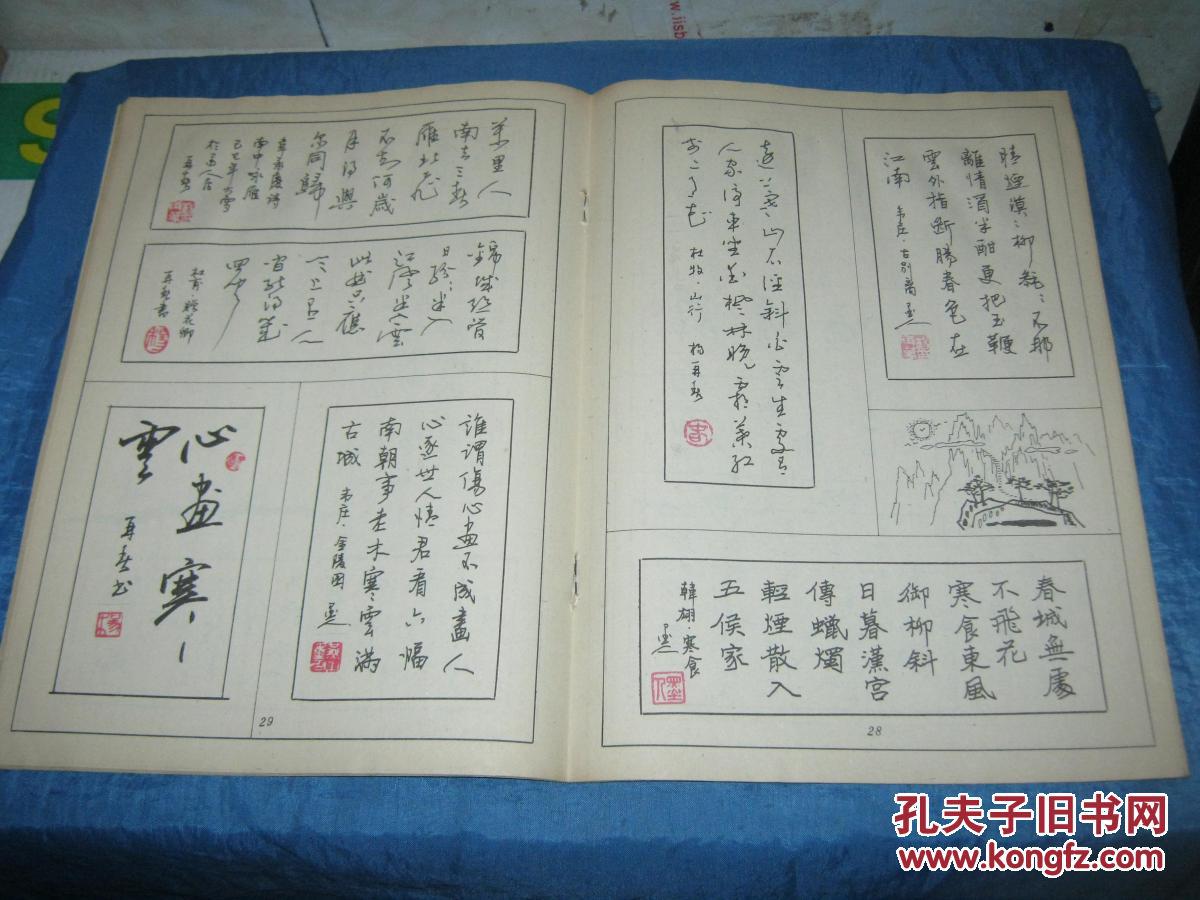 晴煙漠漠柳毿毿不那
離情酒半酣更把玉鞭
雲外指斷腸春色在
江南
韦庄·古别离
遠上寒山石徑斜白雲生處有
人家停車坐愛楓林晚霜葉紅
於二月花
杜牧·山行
杨再春
春城無處
不飛花
寒食東風
御柳斜
日暮漢宮
傳蠟燭
輕煙散入
五侯家
韓翃·寒食
墨人
28
萬里人
南去三春
雁北飛
不知何歲
月得與
尔同歸
韋承慶詩
南中咏雁
己巳年
再春
錦城絲管
日紛紛半入
江風半入雲
此曲只應
天上有人
間能得幾
囬聞
杜甫·贈花卿
再春書
誰謂傷心畫不成畫人
心逐世人情君看六幅
南朝事老木寒雲滿
古城
韦庄·金陵图
心画寒
雲
再春书
29
孔夫子旧书网
www.kongfz.com